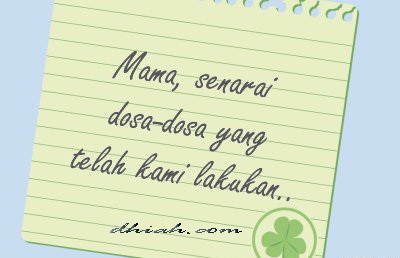 Mama, senarai
dosa-dosa yang
telah kami lakukan..
dhiah.com